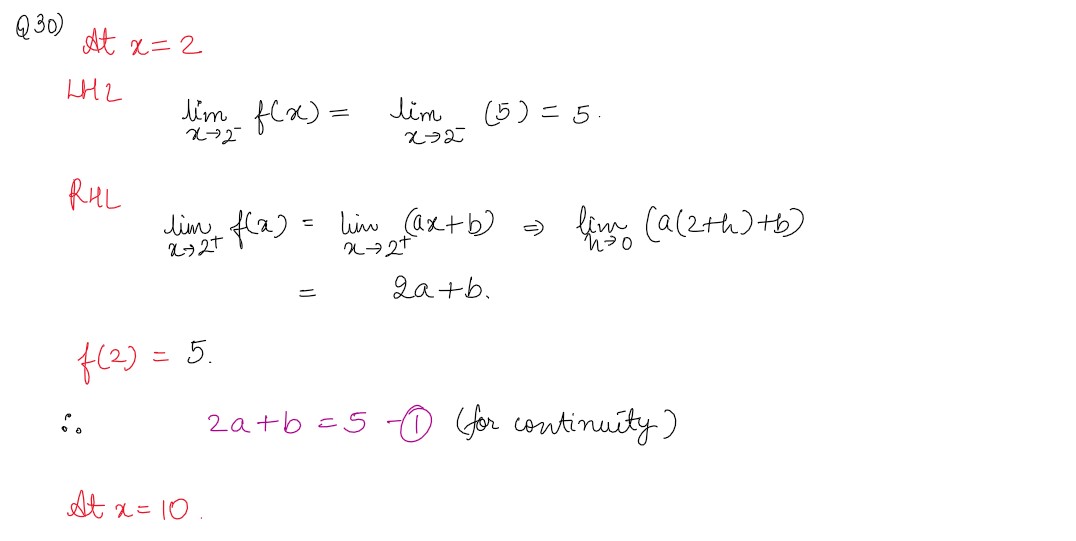 Q30)
At x = 2
LHL
lim x→2⁻ f(x) = lim x→2⁻ (5) = 5.
RHL
lim x→2⁺ f(x) = lim x→2⁺ (ax+b) ⇒ lim h→0 (a(2+h)+b)
= 2a+b.
f(2) = 5.
∴ 2a+b = 5 –① (for continuity)
At x = 10.